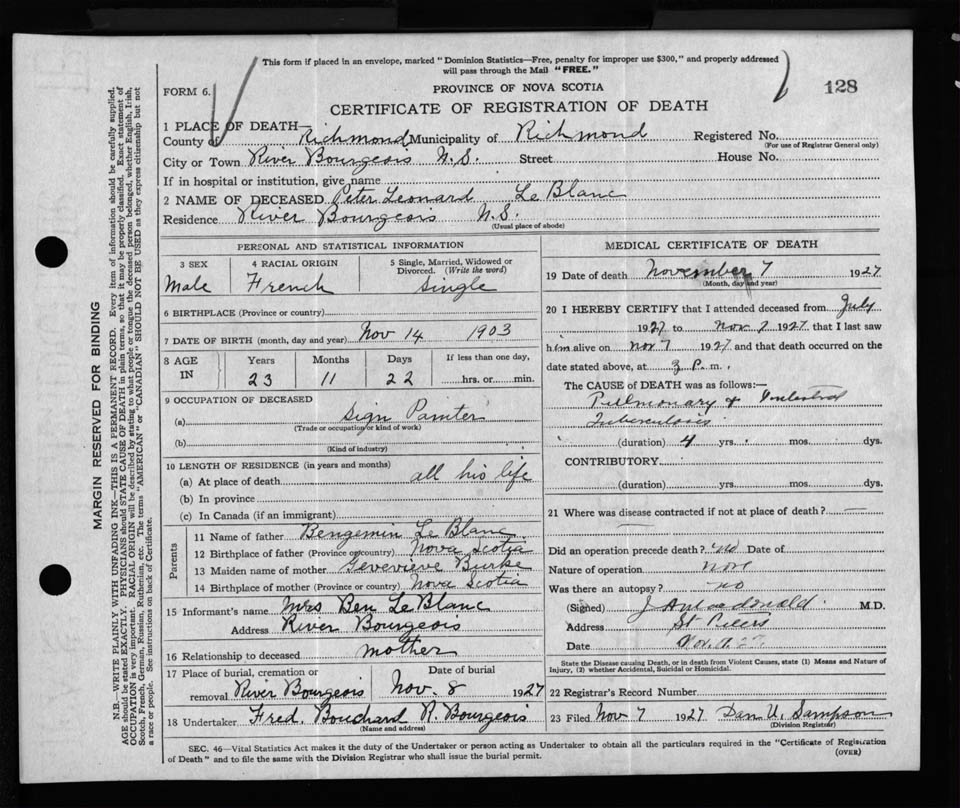 This form if placed in an envelope, marked "Dominion Statistics—Free, penalty for improper use $300," and properly addressed
will pass through the Mail "FREE."
FORM 6.
PROVINCE OF NOVA SCOTIA
128
CERTIFICATE OF REGISTRATION OF DEATH
1 PLACE OF DEATH—
County of Richmond Municipality of Richmond Registered No.
(For use of Registrar General only)
City or Town River Bourgeois N.S. Street House No.
If in hospital or institution, give name
2 NAME OF DECEASED Peter Leonard Le Blanc
Residence River Bourgeois N.S.
(Usual place of abode)
PERSONAL AND STATISTICAL INFORMATION
3 SEX 4 RACIAL ORIGIN 5 Single, Married, Widowed or
Divorced. (Write the word)
Male French Single
6 BIRTHPLACE (Province or country)
7 DATE OF BIRTH (month, day and year) Nov 14 1903
8 AGE IN Years Months Days If less than one day,
23 11 22 hrs. or min.
9 OCCUPATION OF DECEASED
(a) Sign Painter
(Trade or occupation or kind of work)
(b)
(Kind of industry)
10 LENGTH OF RESIDENCE (in years and months)
(a) At place of death all his life
(b) In province
(c) In Canada (if an immigrant)
Parents
11 Name of father Bengemin Le Blanc
12 Birthplace of father (Province or country) Nova Scotia
13 Maiden name of mother Genevieve Burke
14 Birthplace of mother (Province or country) Nova Scotia
15 Informant's name Mrs Ben LeBlanc
Address River Bourgeois
16 Relationship to deceased mother
17 Place of burial, cremation or Date of burial
removal River Bourgeois Nov. 8 1927
18 Undertaker Fred. Bouchard R. Bourgeois
(Name and address)
MEDICAL CERTIFICATE OF DEATH
19 Date of death November 7 1927
(Month, day and year)
20 I HEREBY CERTIFY that I attended deceased from July
1927 to Nov 7 1927 that I last saw
him alive on Nov 7 1927 and that death occurred on the
date stated above, at 3 P. m.
The CAUSE of DEATH was as follows:—
Pulmonary & Intestinal
Tuberculosis
(duration) 4 yrs. mos. dys.
CONTRIBUTORY
(duration) yrs. mos. dys.
21 Where was disease contracted if not at place of death? —
Did an operation precede death? no Date of
Nature of operation None
Was there an autopsy? no
(Signed) J A Macdonald M.D.
Address St Peters
Date Nov.
State the Disease causing Death, or in death from Violent Causes, state (1) Means and Nature of
Injury, (2) whether Accidental, Suicidal or Homicidal.
22 Registrar's Record Number
23 Filed Nov 7 1927 Dan U. Sampson
(Division Registrar)
SEC. 46—Vital Statistics Act makes it the duty of the Undertaker or person acting as Undertaker to obtain all the particulars required in the "Certificate of Registration
of Death" and to file the same with the Division Registrar who shall issue the burial permit.
(OVER)
MARGIN RESERVED FOR BINDING
N.B.—WRITE PLAINLY WITH UNFADING INK—THIS IS A PERMANENT RECORD. Every item of information should be carefully supplied.
AGE should be stated EXACTLY. PHYSICIANS should STATE CAUSE OF DEATH in plain terms, so that it may be properly classified. Exact statement of
OCCUPATION is very important. RACIAL ORIGIN will be described by stating to what people or tongue the deceased person belonged, whether English, Irish,
Scotch, French, German, Russian, Ruthenian, etc. The terms "AMERICAN" or "CANADIAN" SHOULD NOT BE USED as they express citizenship but not
a race or people. See instructions on back of Certificate.